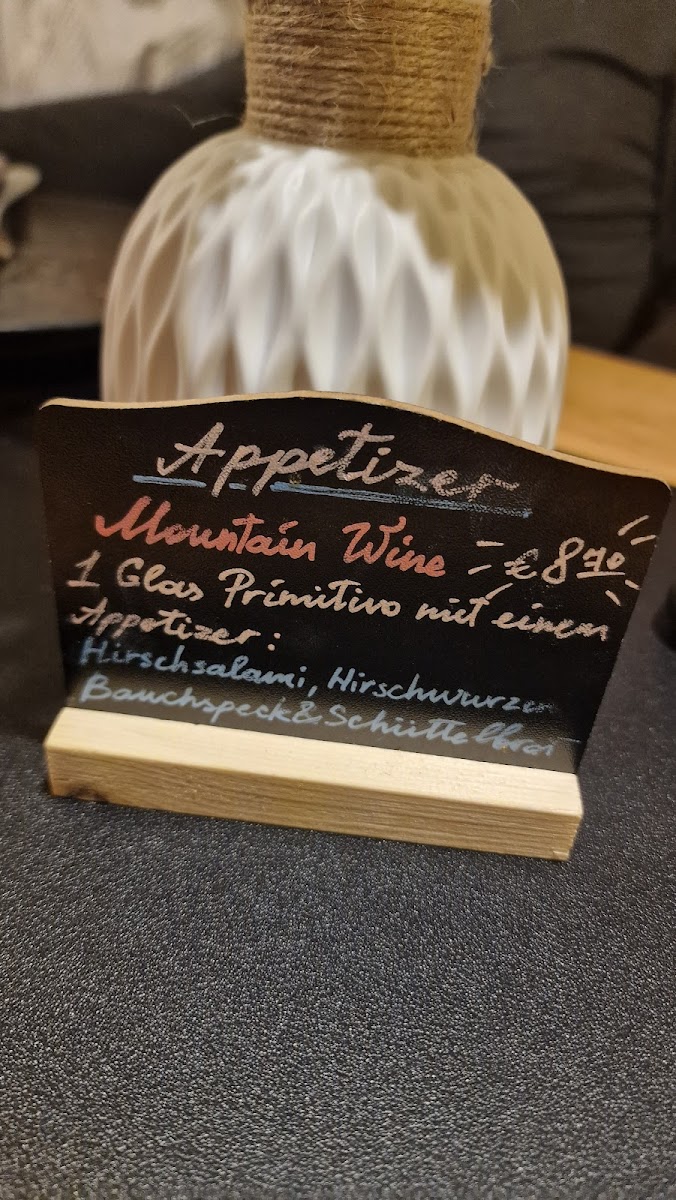 Appetizer
Mountain Wine € 8 90
1 Glas Primitivo mit einem
Appetizer:
Hirschsalami, Hirschwurzen
Bauchspeck & Schüttelbrot